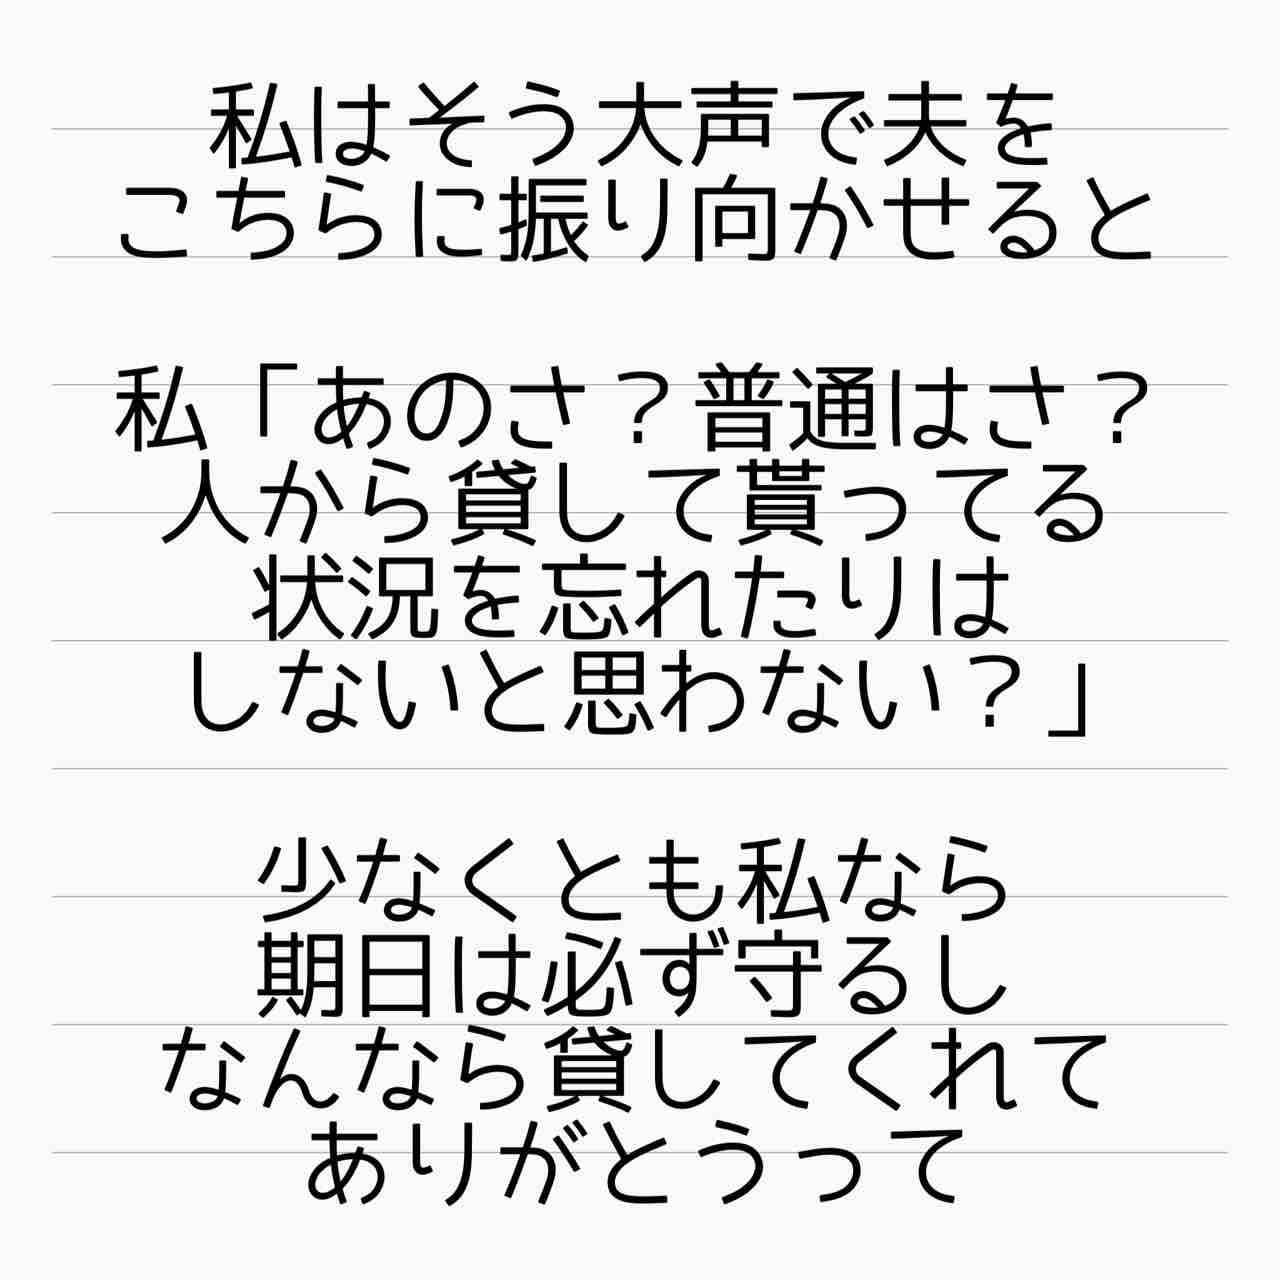 私はそう大声で夫を
こちらに振り向かせると
私「あのさ？普通はさ？
人から貸して貰ってる
状況を忘れたりは
しないと思わない？」
少なくとも私なら
期日は必ず守るし
なんなら貸してくれて
ありがとうって